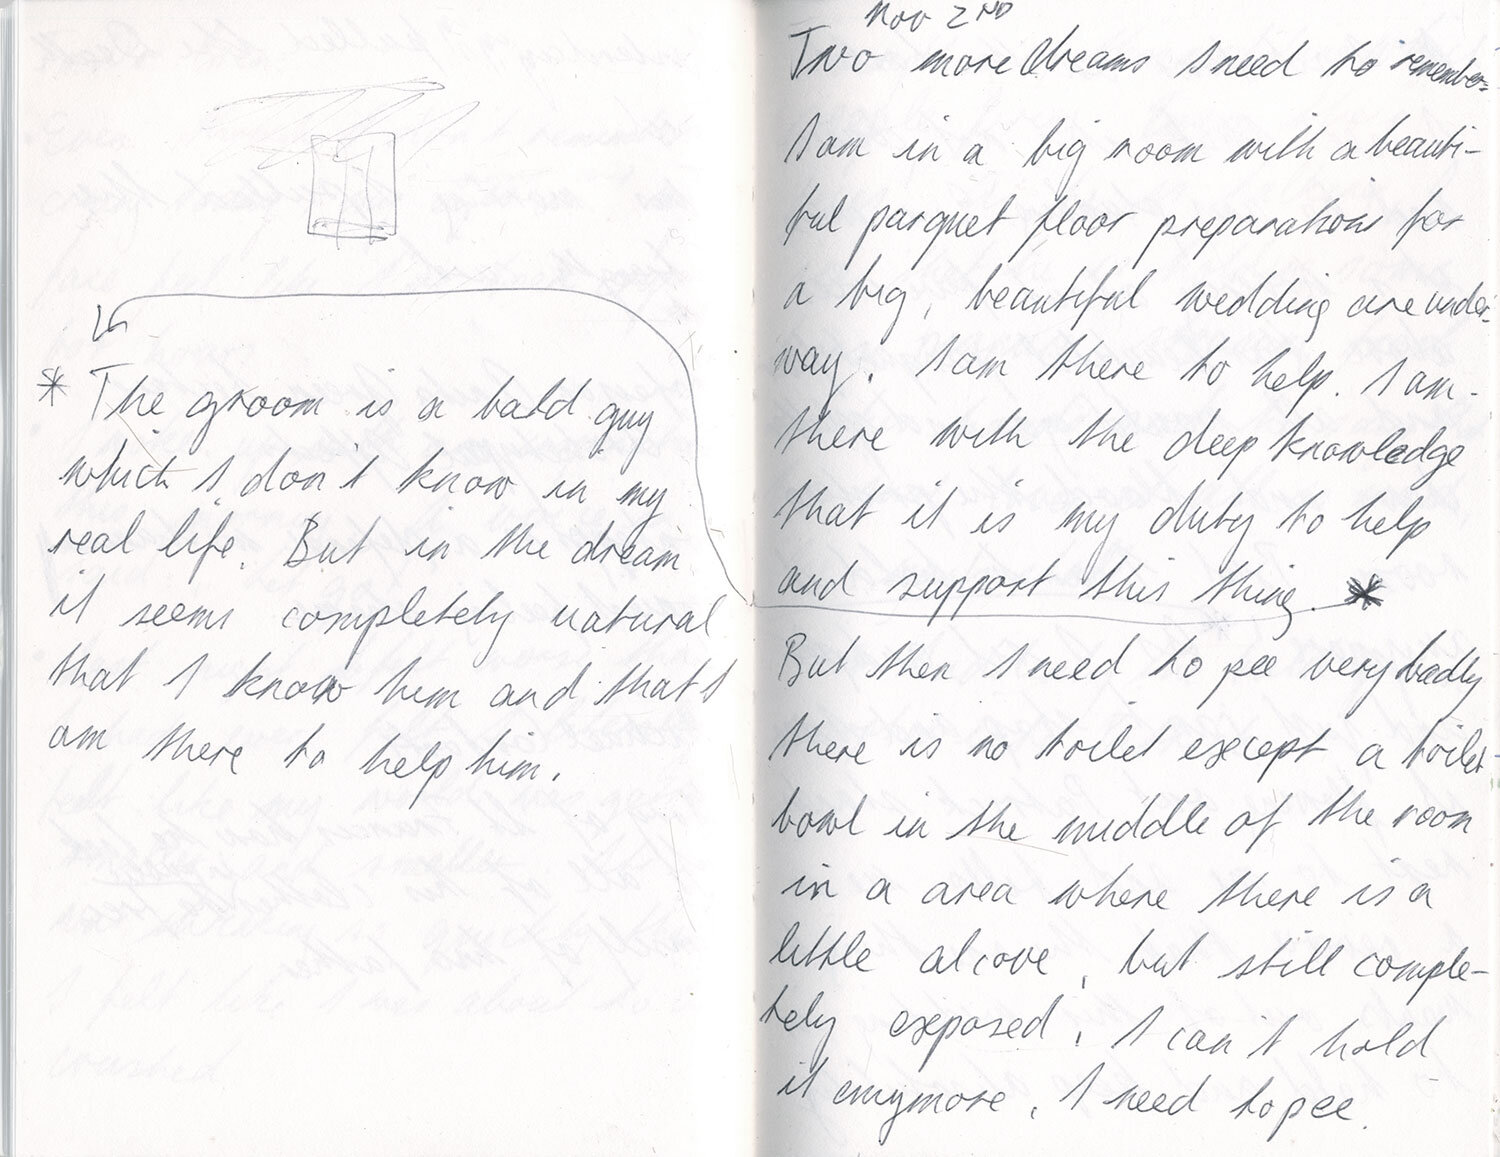 * The groom is a bald guy
which I don't know in my
real life. But in the dream
it seems completely natural
that I know him and that I
am there to help him.
Nov 2ND
Two more dreams I need to remember.
I am in a big room with a beauti-
ful parquet floor preparations for
a big, beautiful wedding are under-
way. I am there to help. I am
there with the deep knowledge
that it is my duty to help
and support this thing. *
But then I need to pee very badly
there is no toilet except a toilet-
bowl in the middle of the room
in a area where there is a
little alcove, but still comple-
tely exposed. I can't hold
it anymore, I need to pee.